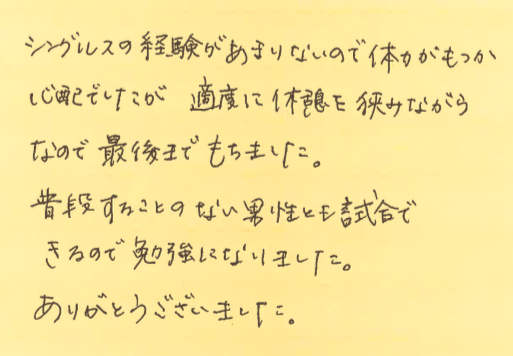 シングルスの経験があまりないので体力がもつか
心配でしたが 適度に休憩を挟みながら
なので最後までもちました。
普段することのない男性とも試合で
きるので勉強になりました。
ありがとうございました。